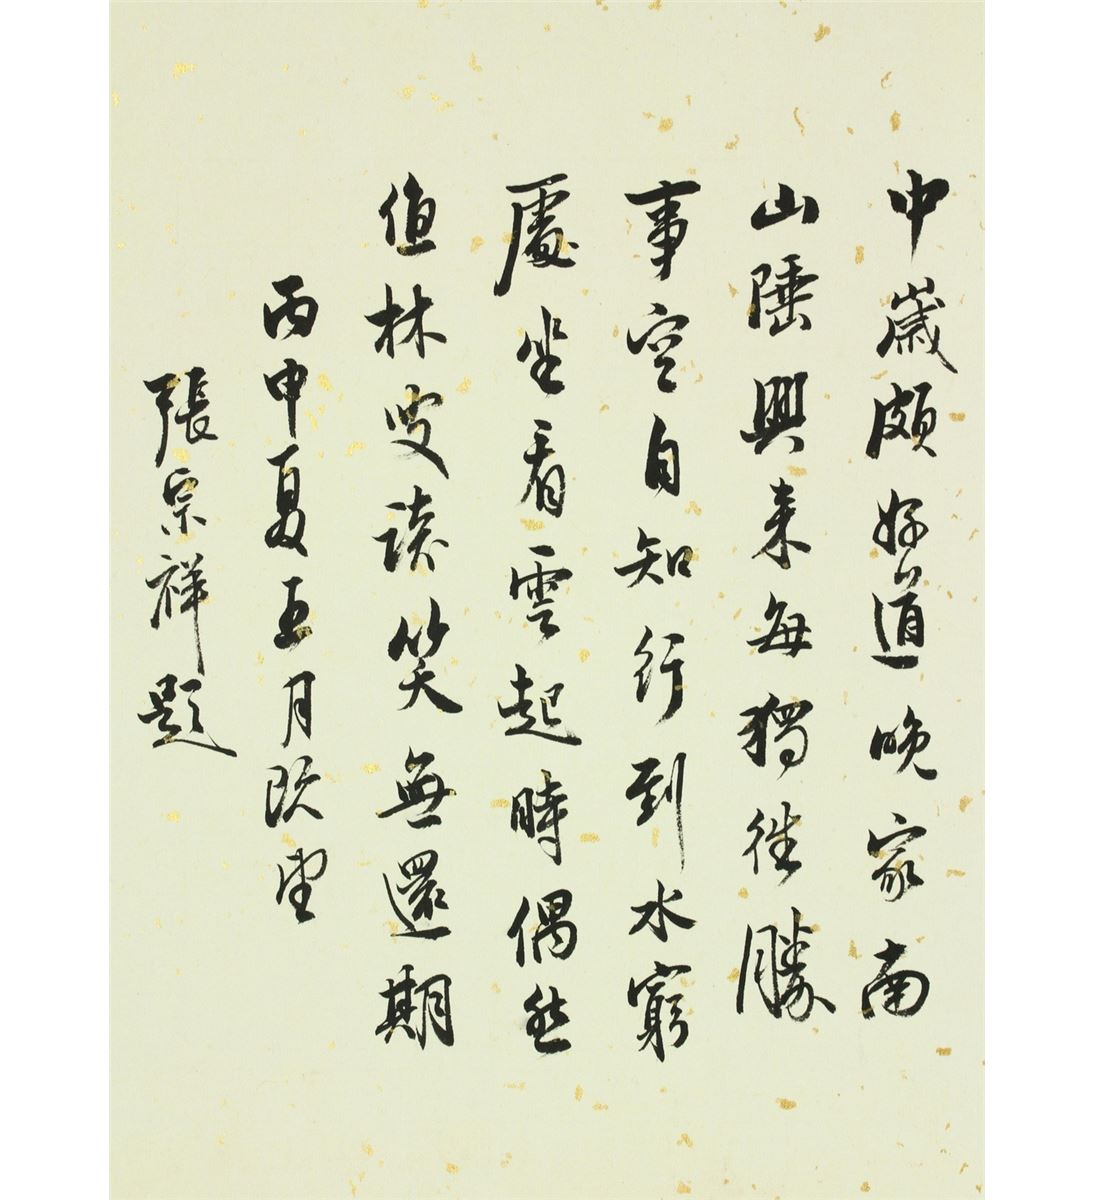 中歲頗好道晚家南
山陲興来每獨往勝
事空自知行到水窮
處坐看雲起時偶然
值林叟談笑無還期
丙申夏五月既望
張宗祥題